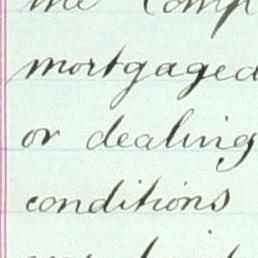 the Comp
mortgaged
or dealing
conditions